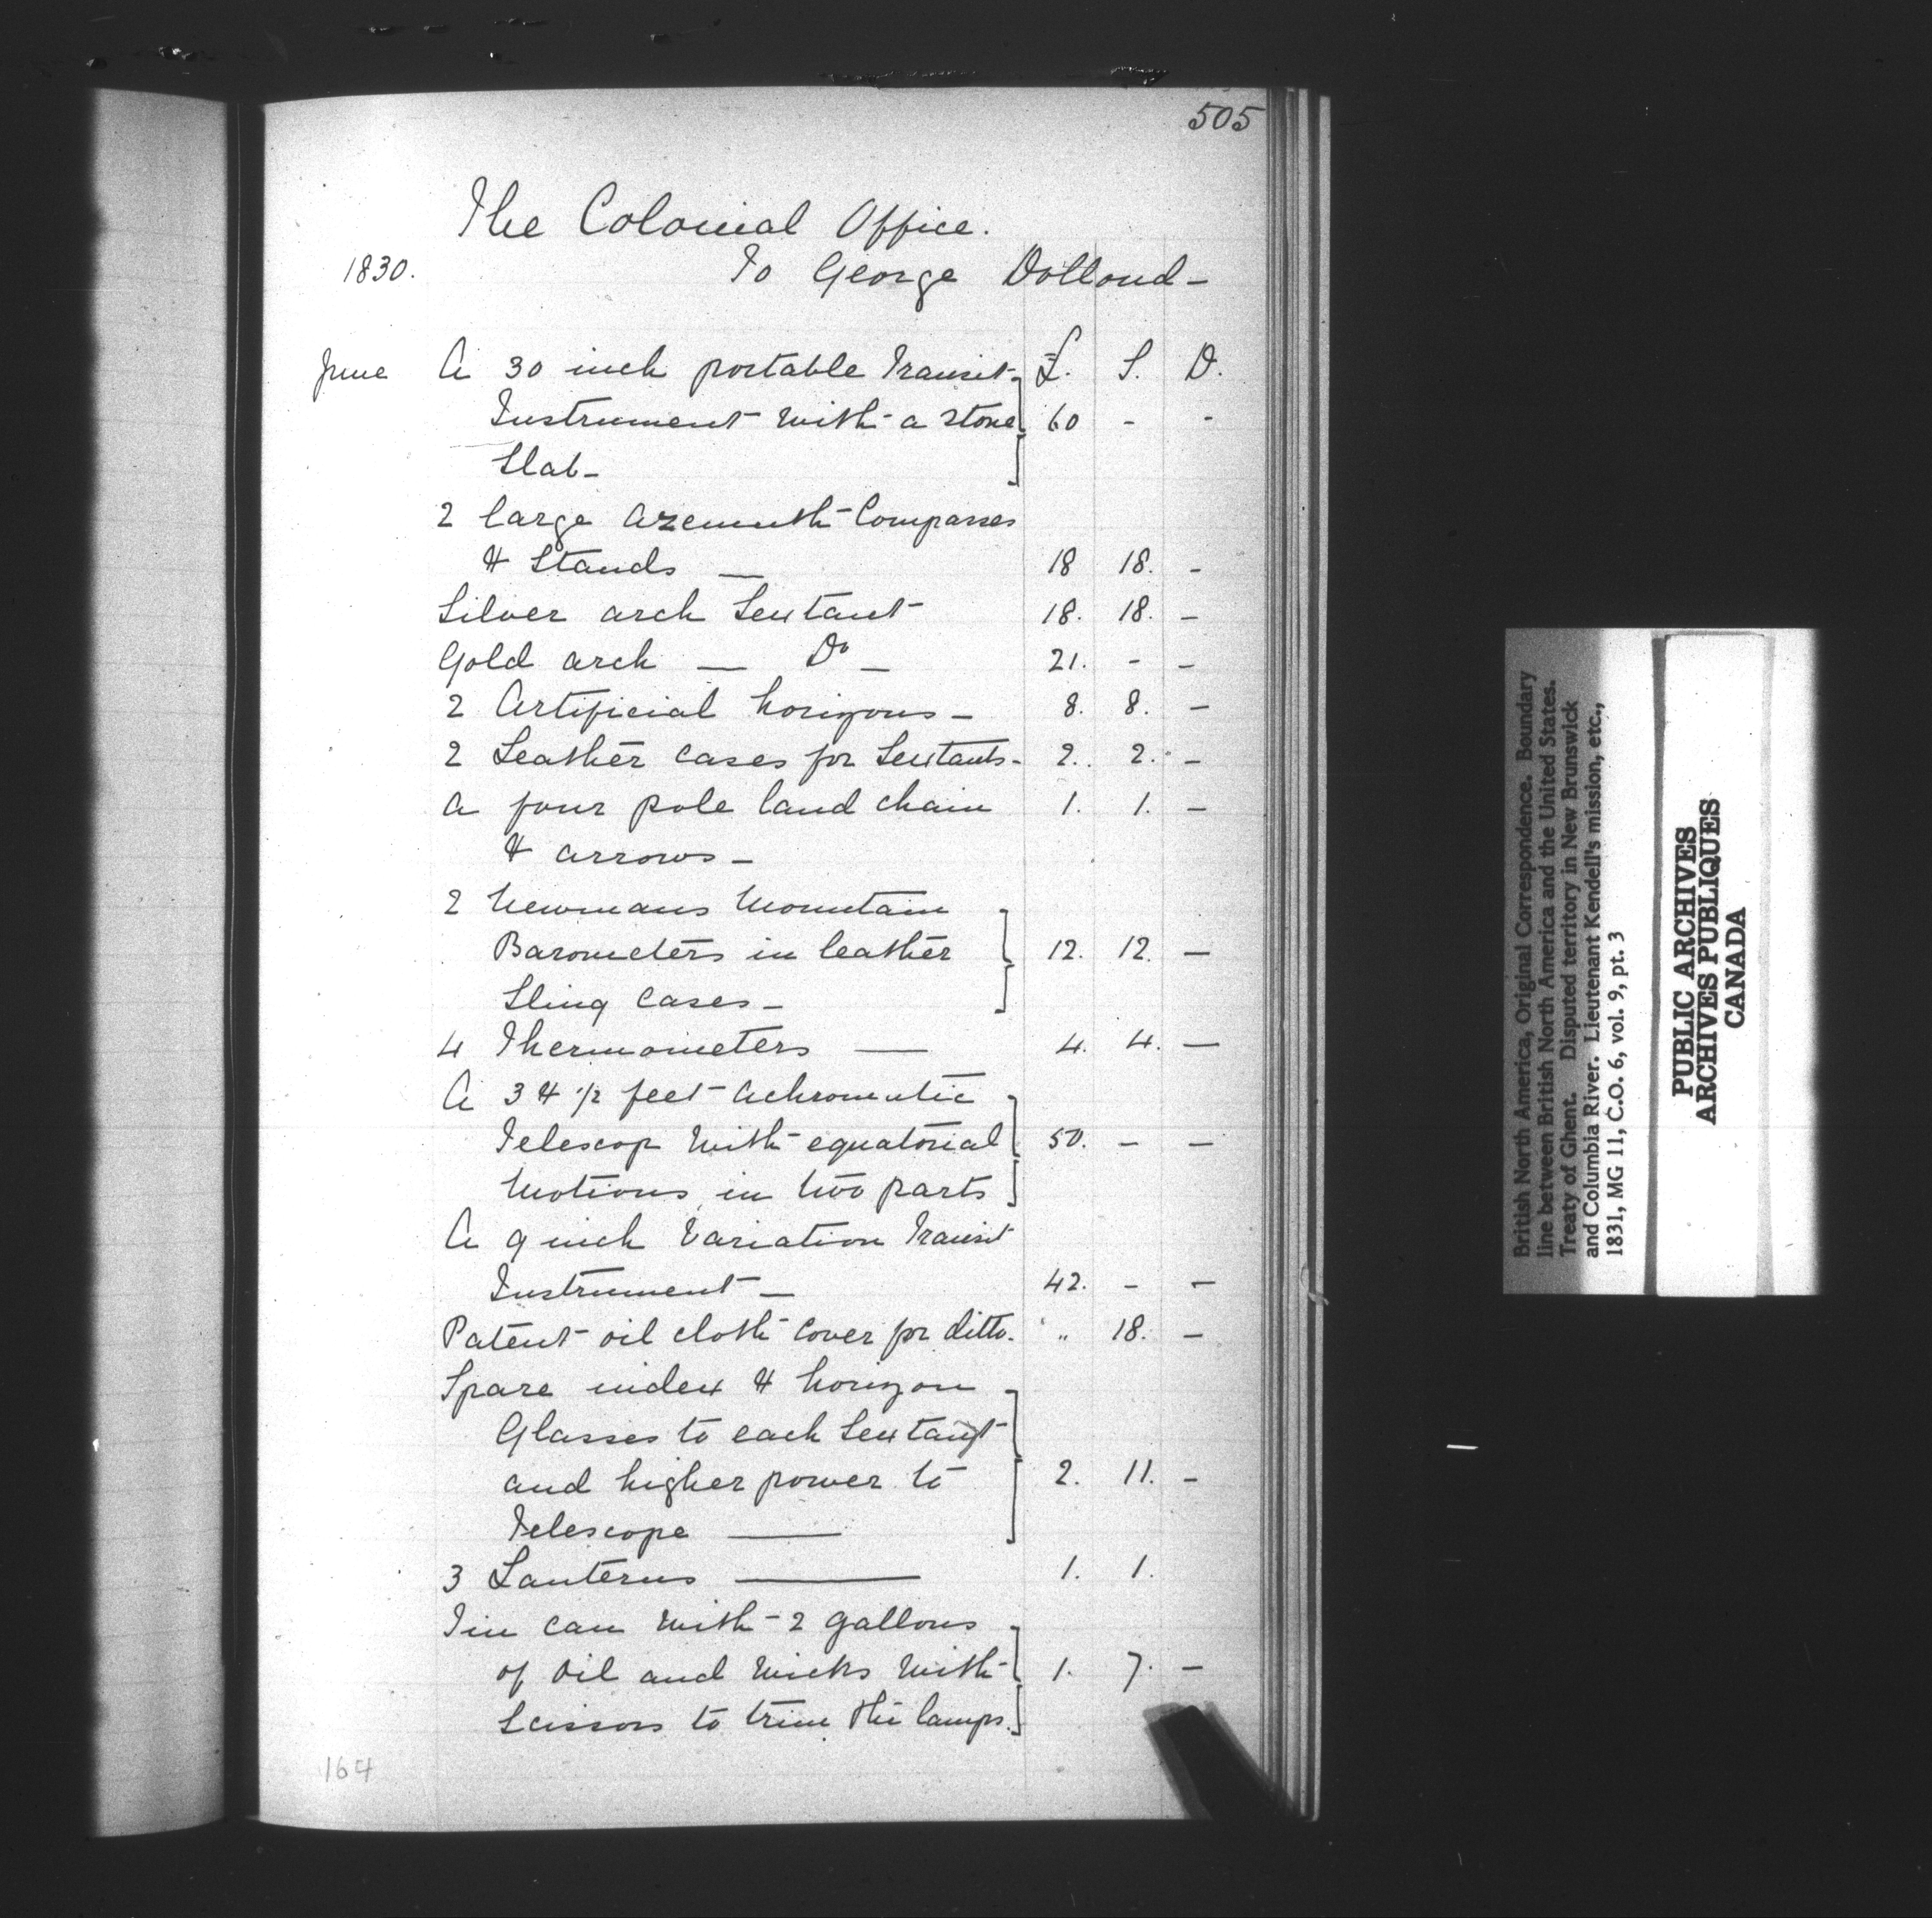 505
The Colonial Office.
1830. To George Dollond -
June A 30 inch portable Transit £. S. D.
Instrument with a stone 60 - -
Slab -
2 large Azemuth Compasses
& Stands — 18 18. -
Silver arch Sextant 18. 18. -
Gold arch — Do — 21. - -
2 Artificial horizons - 8. 8. -
2 Leather cases for Sextants - 2. 2. -
A four pole land chain 1. 1. -
& arrows -
2 Newmans Mountain
Barometers in leather 12. 12. -
Sling Cases -
4 Thermometers — 4. 4. —
A 3 & 1/2 feet Achromatic
Telescop with equatorial 50. - -
Motions in two parts
A 9 inch Variation Transit
Instrument - 42. - -
Patent oil cloth Cover for ditto. " 18. -
Spare index & horizon
Glasses to each Sextant
and higher power to 2. 11. -
Telescope —
3 Lanterns — 1. 1.
Tin can with 2 gallons
of Oil and Wicks with 1. 7. -
Scissors to trim the lamps.
164
British North America, Original Correspondence. Boundary
line between British North America and the United States.
Treaty of Ghent. Disputed territory in New Brunswick
and Columbia River. Lieutenant Kendell's mission, etc.,
1831, MG 11, C.O. 6, vol. 9, pt. 3
PUBLIC ARCHIVES
ARCHIVES PUBLIQUES
CANADA